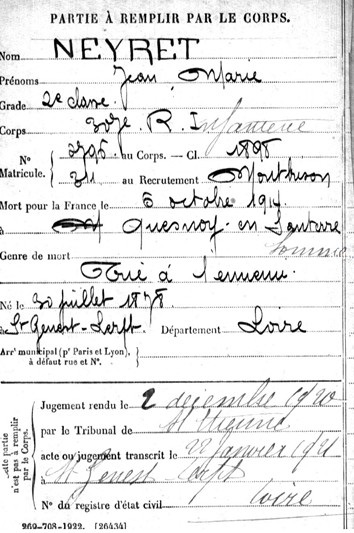 PARTIE À REMPLIR PAR LE CORPS.
Nom NEYRET
Prénoms Jean Marie
Grade 2e classe.
Corps R. Infanterie
N° 2795 au Corps. — Cl. 1898
Matricule. 311 au Recrutement Montbrison
Mort pour la France le 6 octobre 1914
à Quesnoy en Santerre
Somme
Genre de mort Tué à l'ennemi.
Né le 30 juillet 1878
à St Genest-Lerpt Département Loire
Arrt municipal (pr Paris et Lyon),
à défaut rue et N°.
Cette partie
n'est pas à remplir
par le Corps.
Jugement rendu le 2 décembre 1920
par le Tribunal de St Etienne
acte ou jugement transcrit le 22 janvier 1921
à St Genest Lerpt
N° du registre d'état civil Loire
269-708-1922. [26434]